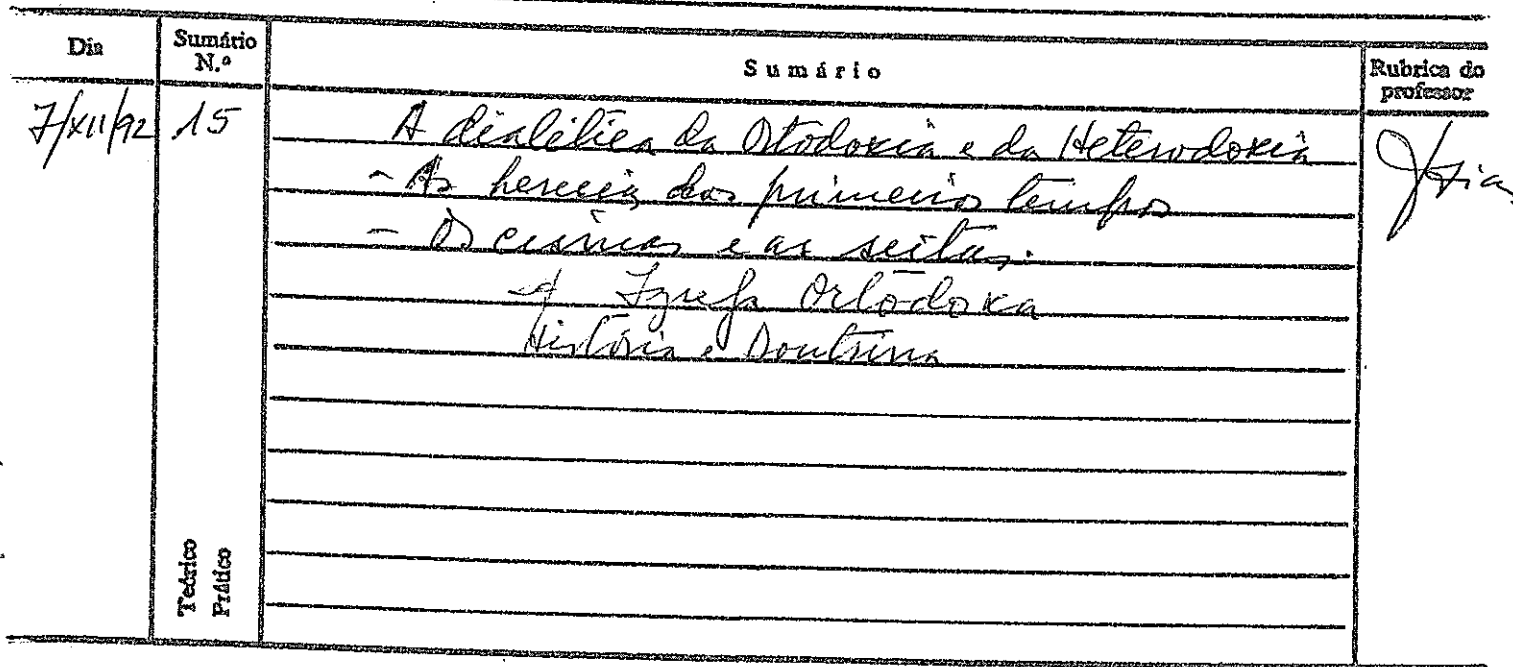 Dia
Sumário N.º
Sumário
Rubrica do professor
7/XII/92
15
A dialética da Ortodoxia e da Heterodoxia
- As heresias dos primeiros tempos
- Os cismas e as seitas.
A Igreja Ortodoxa
História e Doutrina
Teórico
Prático